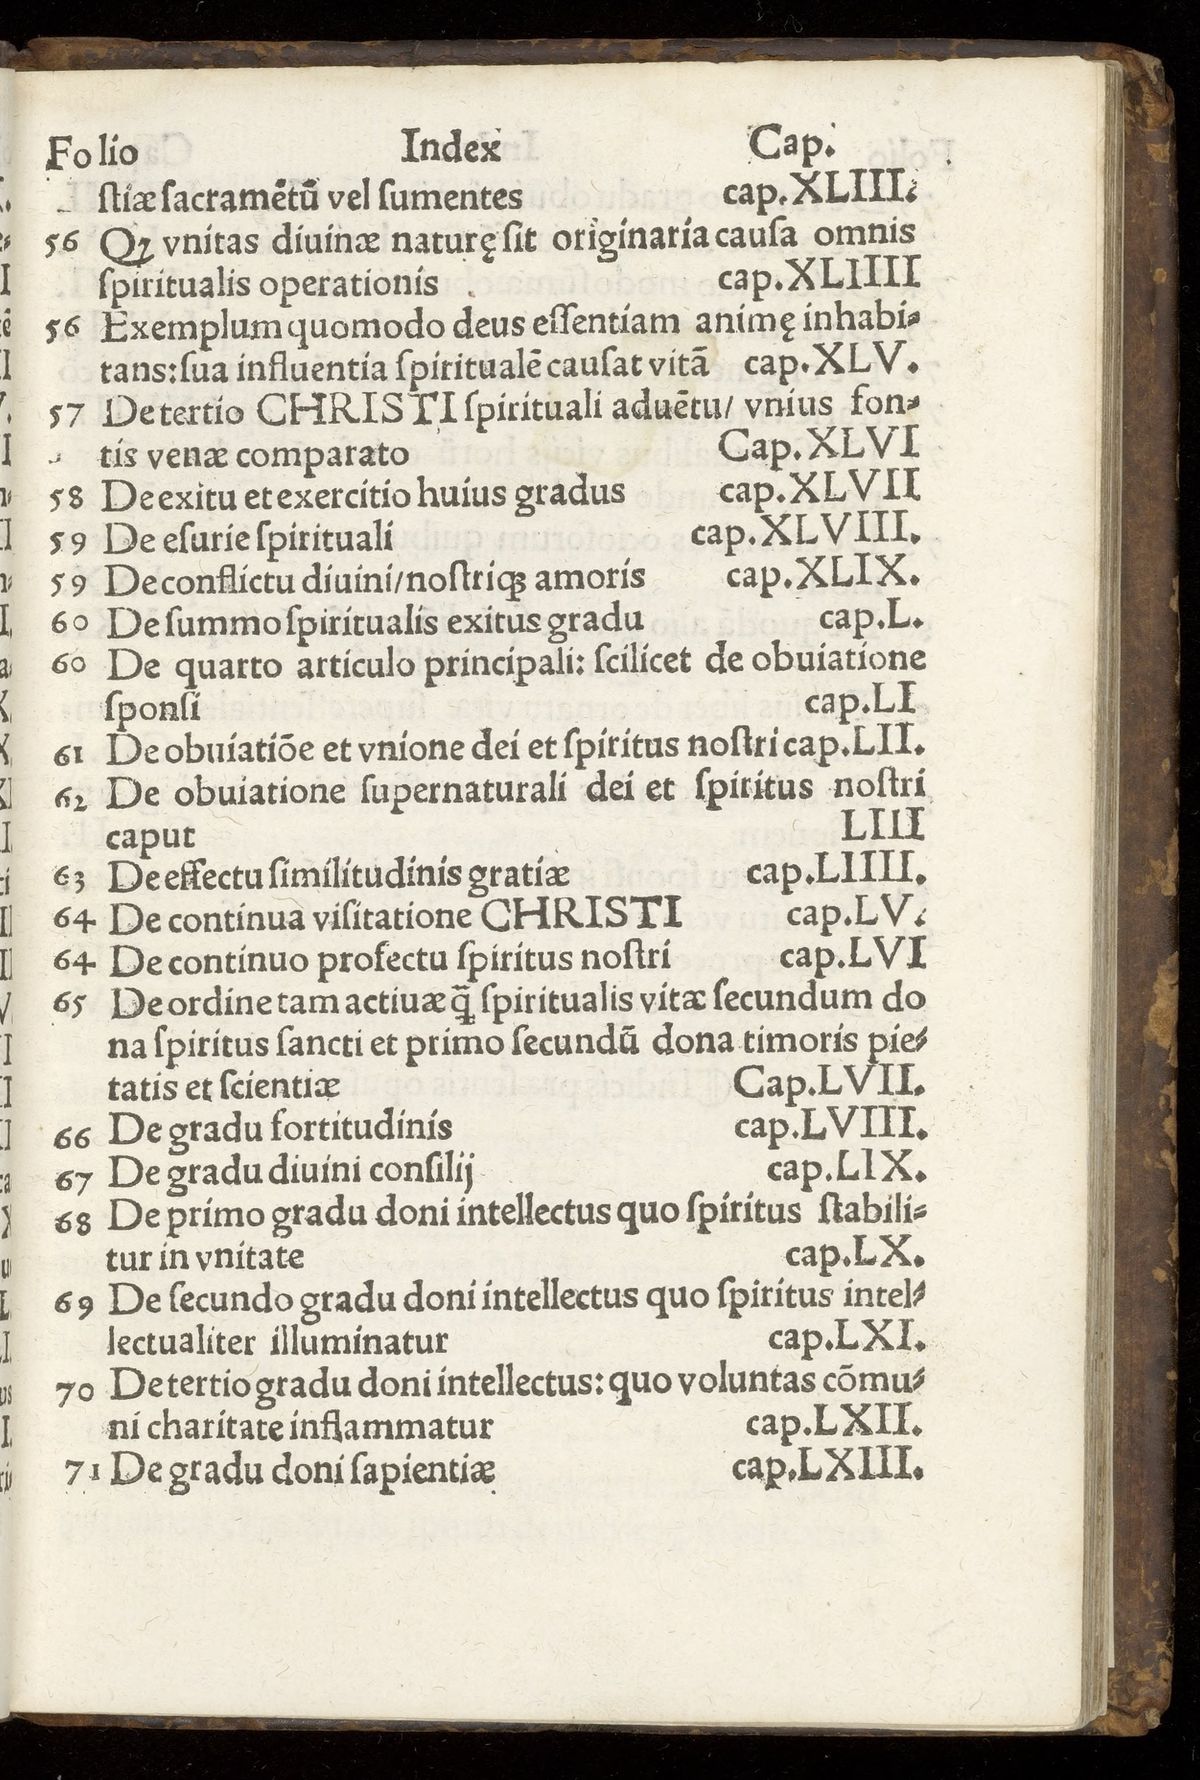 Folio Index Cap.
ſtiæ ſacramẽtũ vel ſumentes cap.XLIII.
56 Qꝫ vnitas diuinæ naturę ſit originaria cauſa omnis
ſpiritualis operationis cap.XLIIII
56 Exemplum quomodo deus eſſentiam animę inhabi⸗
tans: ſua influentia ſpiritualẽ cauſat vitã cap.XLV.
57 De tertio CHRISTI ſpirituali aduẽtu/ vnius fon⸗
tis venæ comparato Cap.XLVI
58 De exitu et exercitio huius gradus cap.XLVII
59 De eſurie ſpirituali cap.XLVIII.
59 De conflictu diuini/noſtriqꝫ amoris cap.XLIX.
60 De ſummo ſpiritualis exitus gradu cap.L.
60 De quarto articulo principali: ſcilicet de obuiatione
ſponſi cap.LI
61 De obuiatiõe et vnione dei et ſpiritus noſtri cap.LII.
62 De obuiatione ſupernaturali dei et ſpiritus noſtri
caput LIII
63 De effectu ſimilitudinis gratiæ cap.LIIII.
64 De continua viſitatione CHRISTI cap.LV.
64 De continuo profectu ſpiritus noſtri cap.LVI
65 De ordine tam actiuæ q̃ ſpiritualis vitæ ſecundum do
na ſpiritus ſancti et primo ſecundũ dona timoris pie⸗
tatis et ſcientiæ Cap.LVII.
66 De gradu fortitudinis cap.LVIII.
67 De gradu diuini conſilij cap.LIX.
68 De primo gradu doni intellectus quo ſpiritus ſtabili⸗
tur in vnitate cap.LX.
69 De ſecundo gradu doni intellectus quo ſpiritus intel⸗
lectualiter illuminatur cap.LXI.
70 De tertio gradu doni intellectus: quo voluntas cõmu⸗
ni charitate inflammatur cap.LXII.
71 De gradu doni ſapientiæ cap.LXIII.